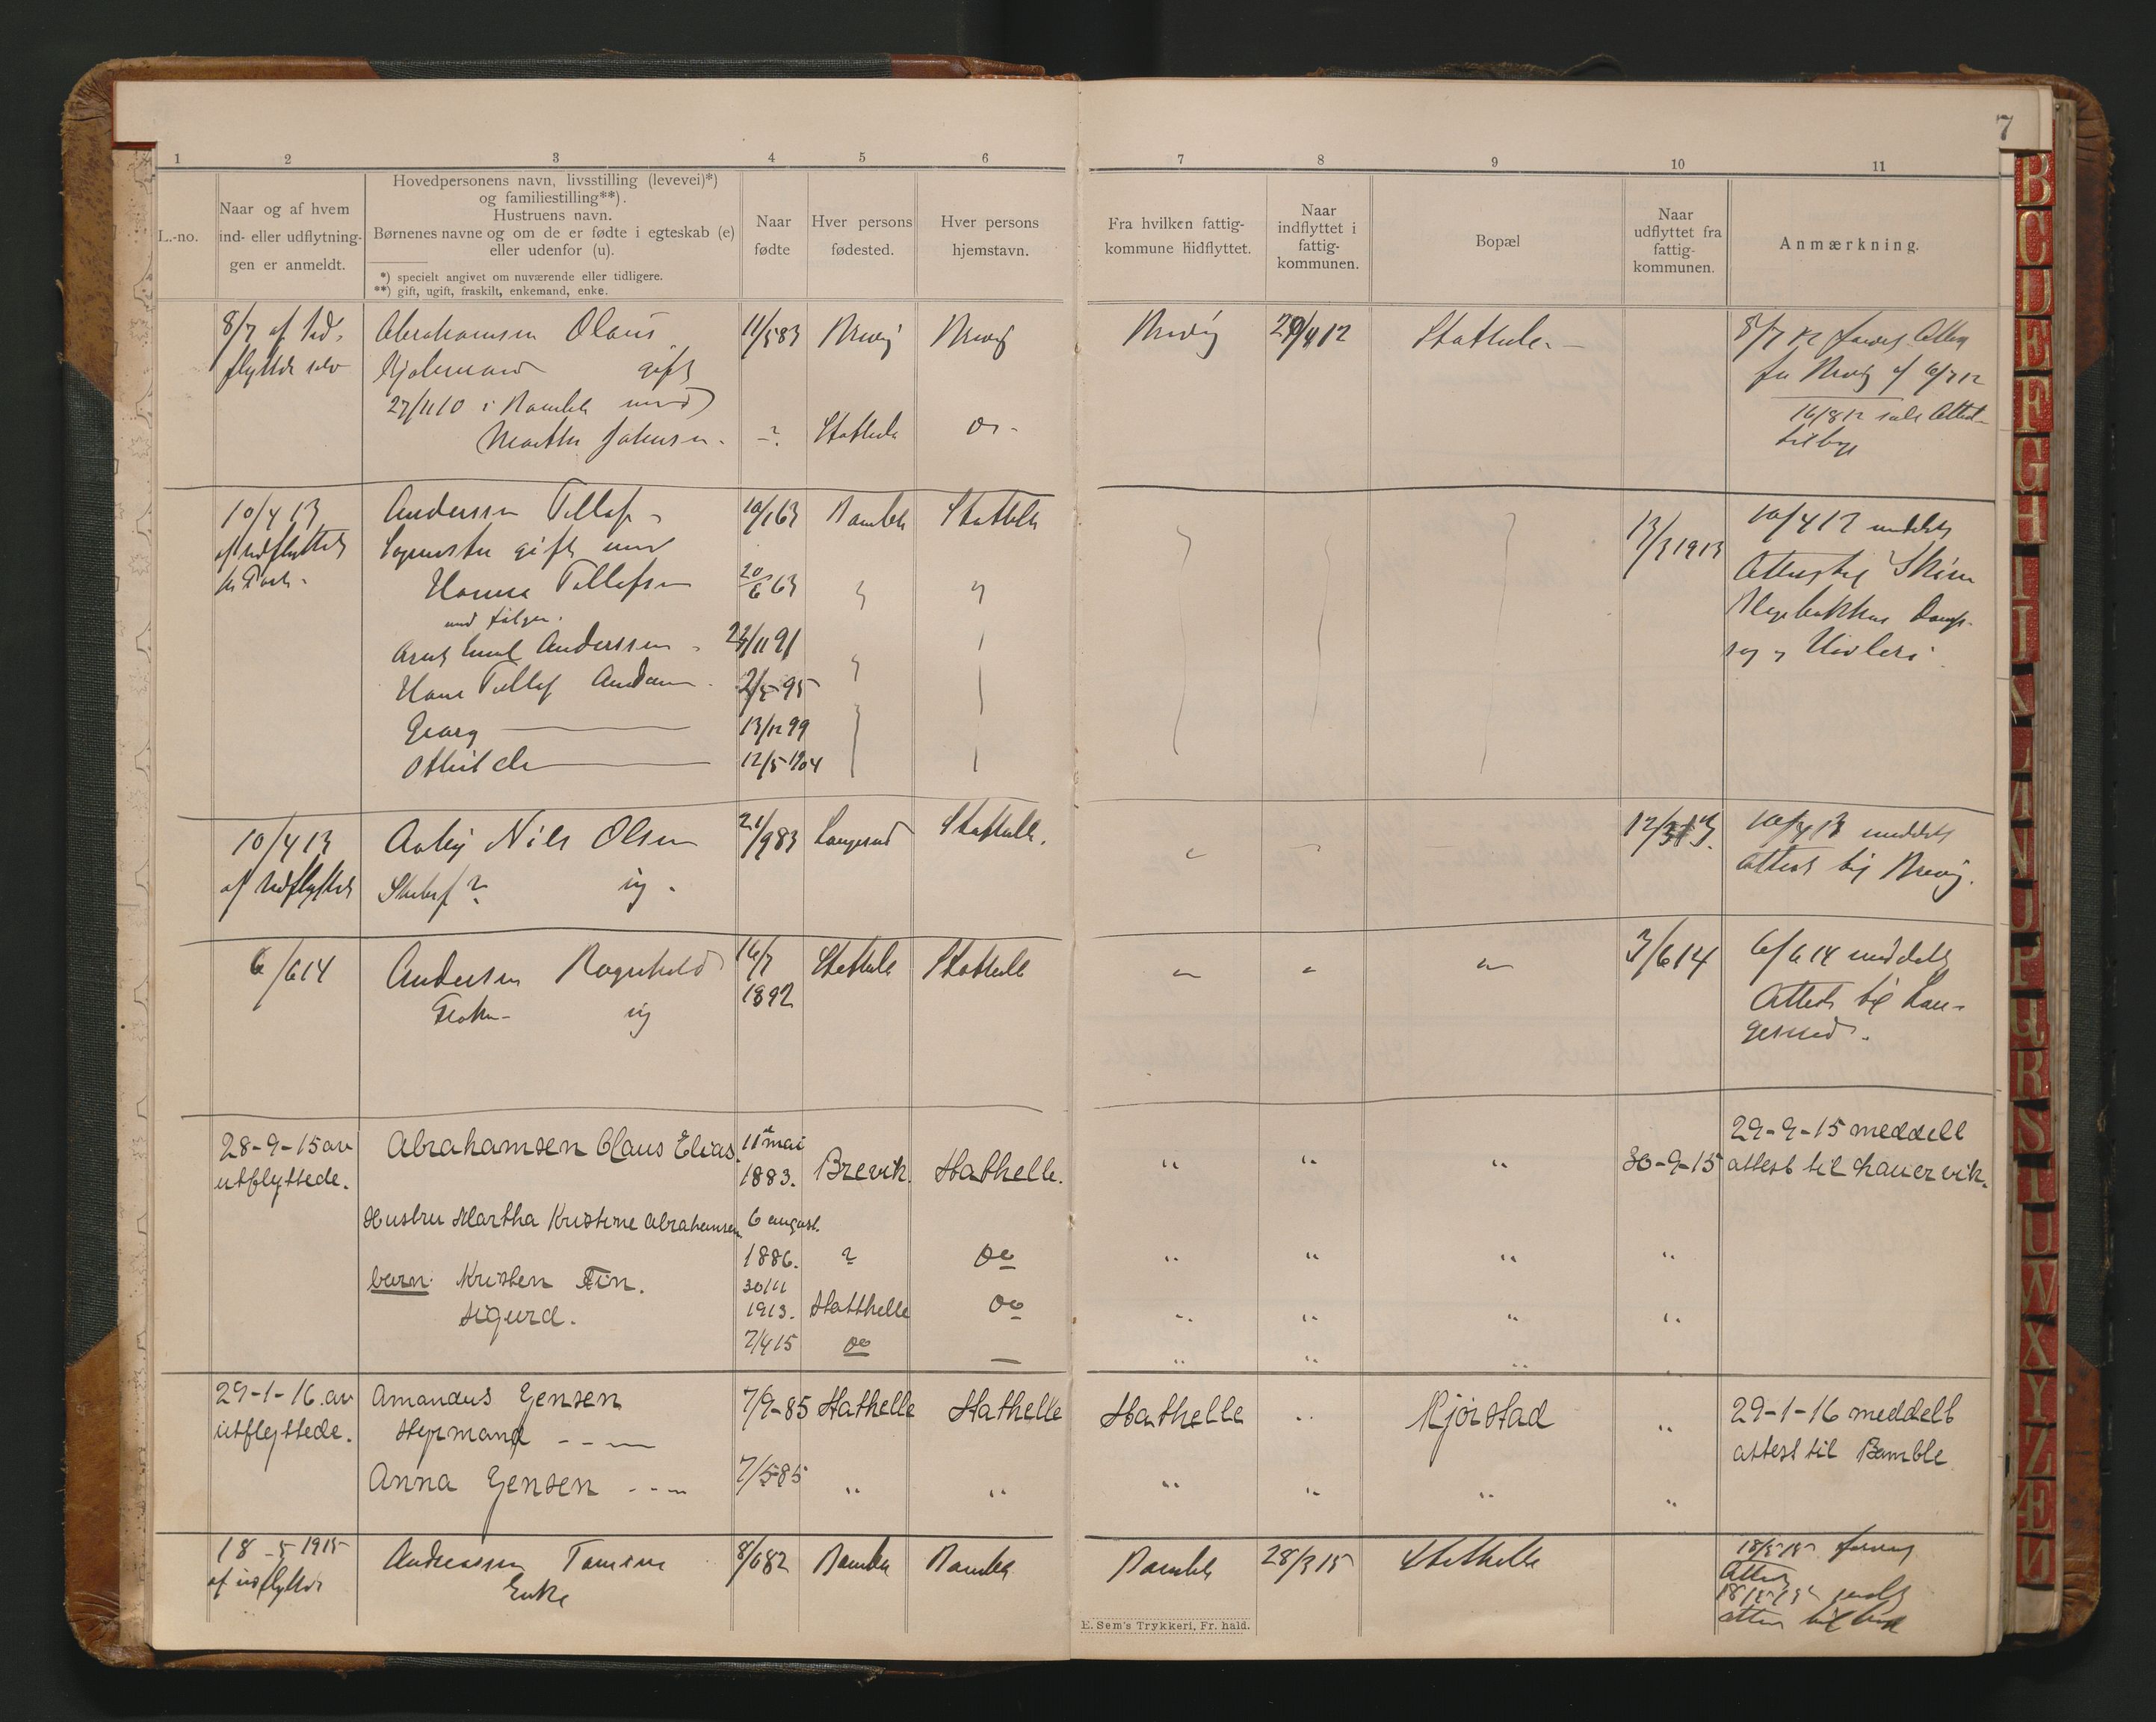 7
1 2 3 4 5 6 7 8 9 10 11
L.-no.
Naar og af hvem
ind- eller udflytnin-
gen er anmeldt.
Hovedpersonens navn, livsstilling (levevei)*)
og familiestilling**).
Hustruens navn.
Børnenes navne og om de er fødte i egteskab (e)
eller udenfor (u).
*) specielt angivet om nuværende eller tidligere.
**) gift, ugift, fraskilt, enkemand, enke.
Naar
fødte
Hver persons
fødested.
Hver persons
hjemstavn.
Fra hvilken fattig-
kommune hidflyttet.
Naar
indflyttet i
fattig-
kommunen.
Bopæl
Naar
udflyttet fra
fattig-
kommunen.
Anmærkning.
8/7 af ind-
flyttede selv
Abrahamsen Olaus
gift
27/11 10 i Bamble med
Martha Johnsen -
11/5 83
?
Brevig
Stathelle
Brevig
Do -
Brevig
29/4 12
Stathelle -
8/7 12
fra Brevig af 6/7 12
16/8 12 Attest
tilbage
10/4 13
af udflyttede
Anderssen Tellef -
gift med
Hanna Tellefsen
Anderssen -
Hans Tellef Andersen -
Georg
Othilde
10/1 63
20/6 63
23/11 91
2/5 95
13/12 99
12/5 1904
Bamble
Stathelle
13/3 1913
10/4 13 meddelt
Attest til Skien
10/4 13
af udflyttede
Aaby Nils Olsen
ug -
21/9 83
Langesund
Stathelle.
12/3 13.
10/4 13 meddelt
Attest til Brevig.
6/6 14
Andersen Ragnhild
Frøken ug
16/7
1892
Stathelle
Stathelle
3/6 14
6/6 14 meddelt
Attest til Lan-
gesund.
28-9-15 av
utflyttede.
Abrahamsen Olaus Elias.
Hustru Martha Kristine Abrahamsen.
barn Kristen Fin.
Sigurd.
11te mai
1883.
6 august.
1886.
30/11
1913.
7/4 15
Brevik.
?
Stathelle
Do
Stathelle.
Do
Do
—
" " "
30-9-15
29-9-15 meddelt
attest til Laurvik.
" " " "
" " " "
" " "
29-1-16 av
utflyttede.
Amandus Jensen
Styrmand - - —
Anna Jensen - - —
7/9-85
7/5-85
Stathelle
"
Stathelle
"
Stathelle
"
Kjørstad
"
29-1-16 meddelt
attest til Bamble
18-5-1915
af indflyttede
Andreassen Tomine
Enke
8/6 82
Bamble
Bamble
Bamble
28/3 15
Stathelle
18/5 15
Attest
E. Sem's Trykkeri, Fr. hald.
B
C
D
E
F
G
H
I
J
K
L
M
N
O
P
Q
R
S
T
U
W
X
Y
Z
Æ
Ø